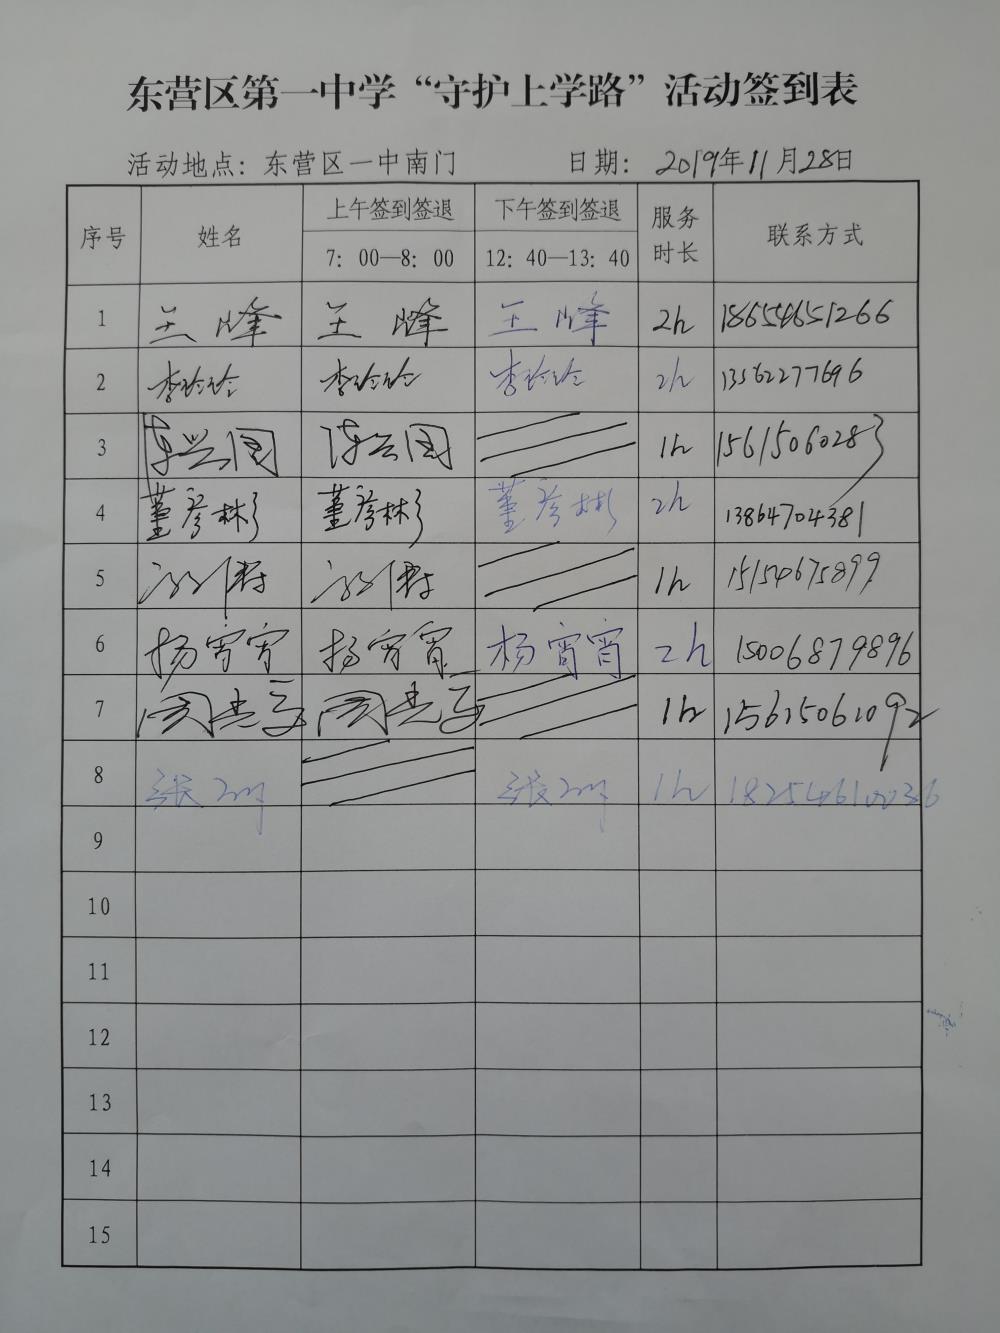 东营区第一中学“守护上学路”活动签到表
活动地点：东营区一中南门 日期：2019年11月28日
序号 姓名 上午签到签退 下午签到签退 服务时长 联系方式
7：00—8：00 12：40—13：40
1 王峰 王峰 王峰 2h 18654651266
2 李玲玲 李玲玲 李玲玲 2h 13562277696
3 1h 15615060283
4 董彦彬 董彦彬 董彦彬 2h 13864704381
5 1h 15154675899
6 杨宵宵 杨宵宵 杨宵宵 2h 15006879896
7 1h 15615061092
8 张 张 1h 18254610036
9
10
11
12
13
14
15